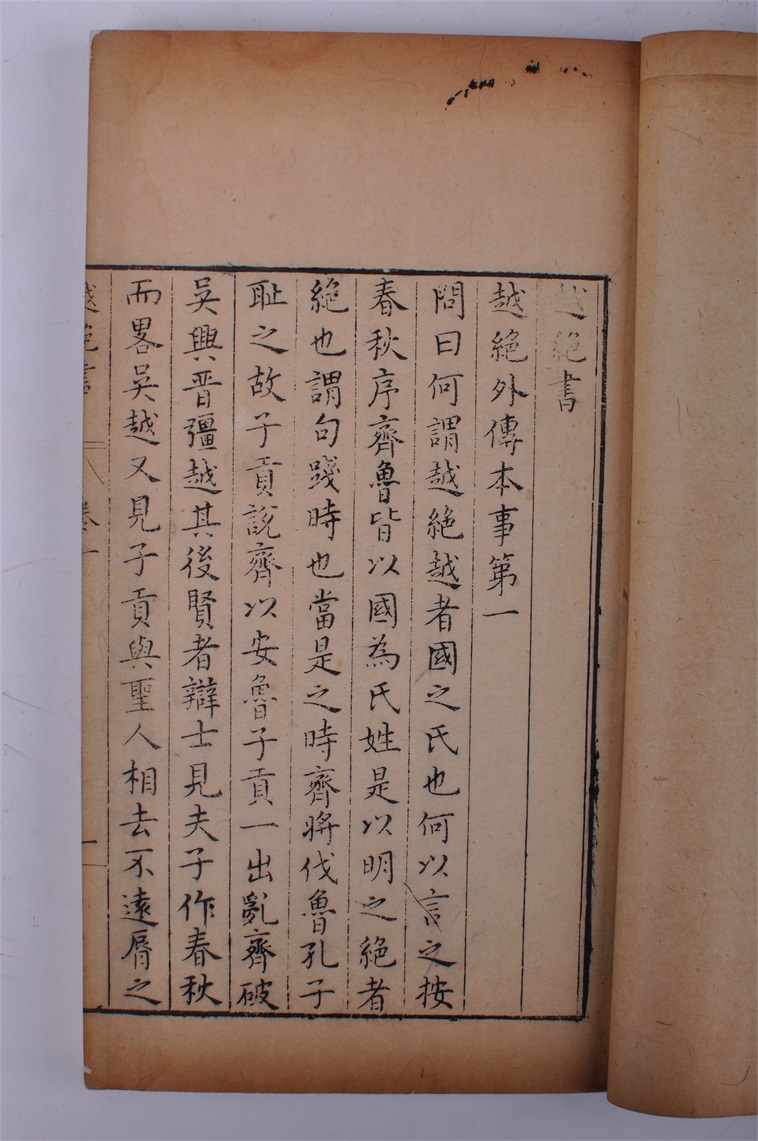 越絕書
越絕外傳本事第一
問曰何謂越絕越者國之氏也何以言之按
春秋序齊魯皆以國為氏姓是以明之絕者
絕也謂句踐時也當是之時齊將伐魯孔子
耻之故子貢說齊以安魯子貢一出亂齊破
吳興晉彊越其後賢者辯士見夫子作春秋
而畧吳越又見子貢與聖人相去不遠脣之
越絕書 卷一 一